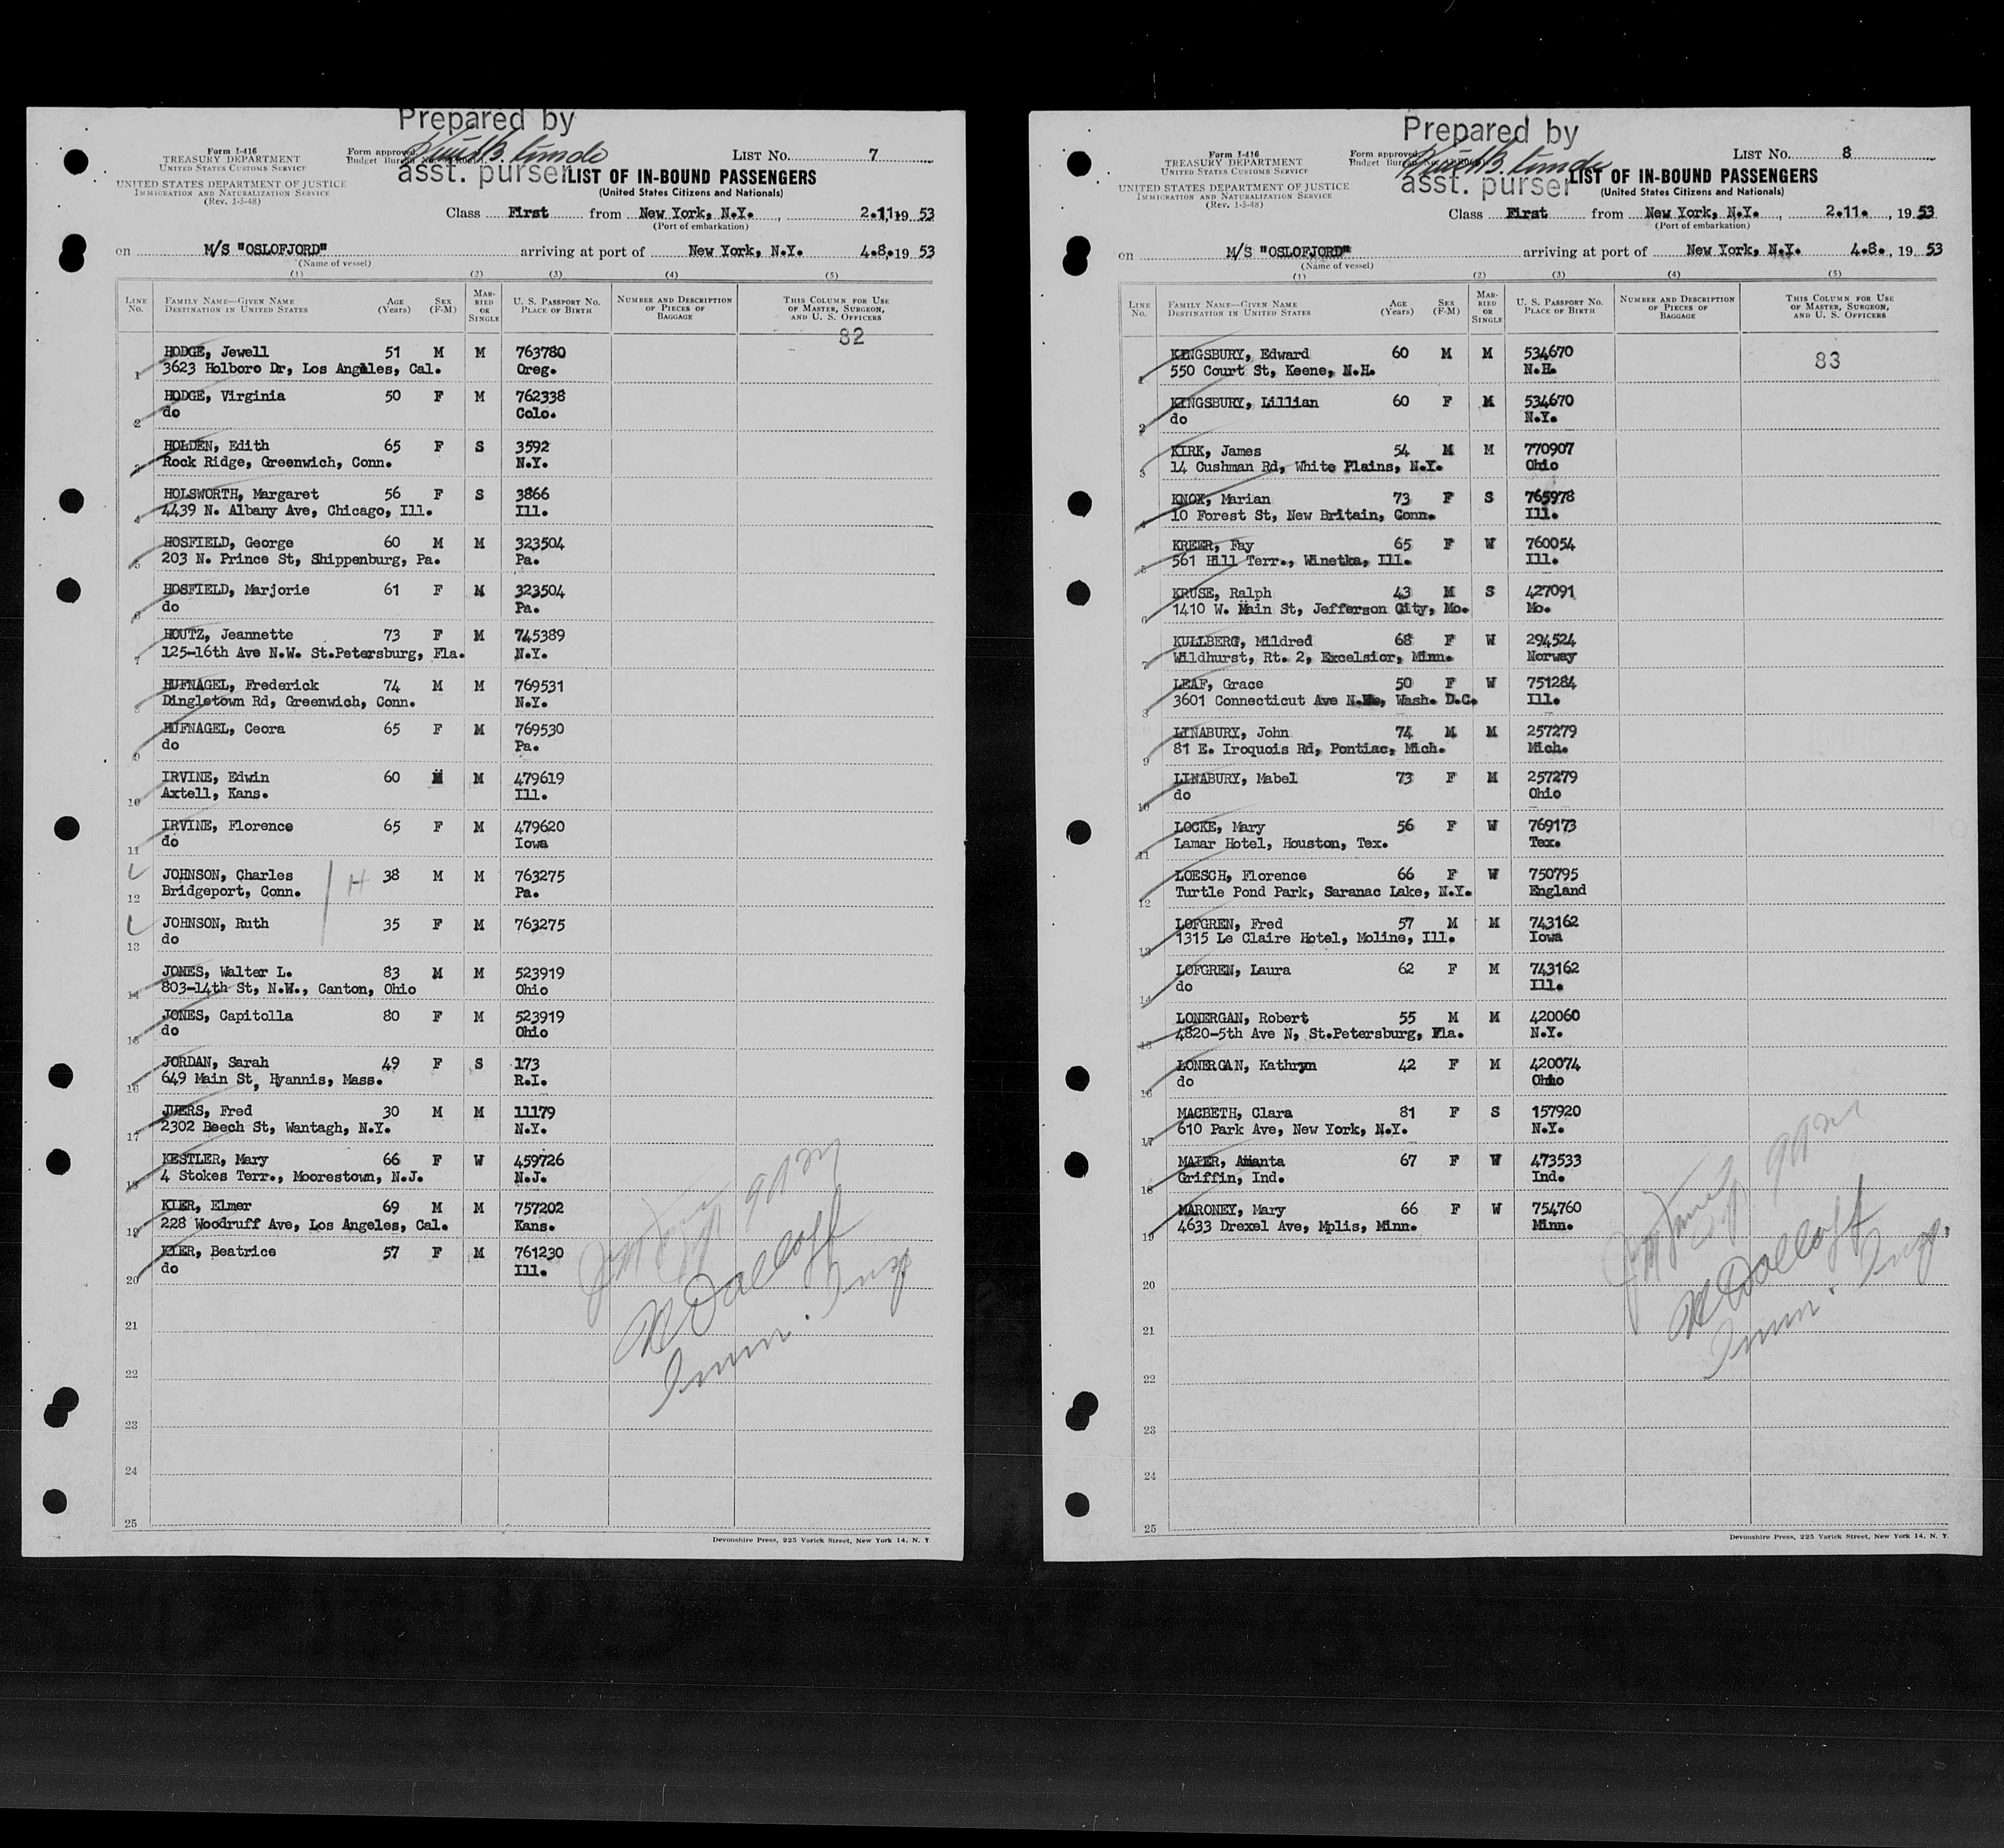 Prepared by
asst. purser
Form I-416
TREASURY DEPARTMENT
UNITED STATES CUSTOMS SERVICE
UNITED STATES DEPARTMENT OF JUSTICE
IMMIGRATION AND NATURALIZATION SERVICE
(Rev. 1-5-48)
Form approved
Budget Bureau No.
LIST NO. 7
LIST OF IN-BOUND PASSENGERS
(United States Citizens and Nationals)
Class First from New York, N.Y., 2.11.19 53
(Port of embarkation)
on M/S "OSLOFJORD" arriving at port of New York, N.Y. 4.8.19 53
(Name of vessel)
(1) (2) (3) (4) (5)
LINE No. FAMILY NAME—GIVEN NAME DESTINATION IN UNITED STATES AGE (Years) SEX (F-M) MARRIED OR SINGLE U. S. PASSPORT NO. PLACE OF BIRTH NUMBER AND DESCRIPTION OF PIECES OF BAGGAGE THIS COLUMN FOR USE OF MASTER, SURGEON, AND U. S. OFFICERS
82
HODGE, Jewell 51 M M 763780
1 3623 Holboro Dr, Los Angeles, Cal. Oreg.
HODGE, Virginia 50 F M 762338
2 do Colo.
HOLDEN, Edith 65 F S 3592
3 Rock Ridge, Greenwich, Conn. N.Y.
HOLSWORTH, Margaret 56 F S 3866
4 4439 N. Albany Ave, Chicago, Ill. Ill.
HOSFIELD, George 60 M M 323504
5 203 N. Prince St, Shippenburg, Pa. Pa.
HOSFIELD, Marjorie 61 F M 323504
6 do Pa.
HOUTZ, Jeannette 73 F M 745389
7 125-16th Ave N.W. St.Petersburg, Fla. N.Y.
HUFNAGEL, Frederick 74 M M 769531
8 Dingletown Rd, Greenwich, Conn. N.Y.
HUFNAGEL, Ceora 65 F M 769530
9 do Pa.
IRVINE, Edwin 60 M M 479619
10 Axtell, Kans. Ill.
IRVINE, Florence 65 F M 479620
11 do Iowa
JOHNSON, Charles H 38 M M 763275
12 Bridgeport, Conn. Pa.
JOHNSON, Ruth 35 F M 763275
13 do
JONES, Walter L. 83 M M 523919
14 803-14th St, N.W., Canton, Ohio Ohio
JONES, Capitolla 80 F M 523919
15 do Ohio
JORDAN, Sarah 49 F S 173
16 649 Main St, Hyannis, Mass. R.I.
JUERS, Fred 30 M M 11179
17 2302 Beech St, Wantagh, N.Y. N.Y.
KESTLER, Mary 66 F W 459726
18 4 Stokes Terr., Moorestown, N.J. N.J.
KIER, Elmer 69 M M 757202
19 228 Woodruff Ave, Los Angeles, Cal. Kans.
KIER, Beatrice 57 F M 761230
20 do Ill.
21
22
23
24
25
Imm. Insp
Devonshire Press, 225 Varick Street, New York 14, N. Y.
Prepared by
asst. purser
Form I-416
TREASURY DEPARTMENT
UNITED STATES CUSTOMS SERVICE
UNITED STATES DEPARTMENT OF JUSTICE
IMMIGRATION AND NATURALIZATION SERVICE
(Rev. 1-5-48)
Form approved
Budget Bureau No.
LIST NO. 8
LIST OF IN-BOUND PASSENGERS
(United States Citizens and Nationals)
Class First from New York, N.Y., 2.11., 19 53
(Port of embarkation)
on M/S "OSLOFJORD" arriving at port of New York, N.Y. 4.8., 19 53
(Name of vessel)
(1) (2) (3) (4) (5)
LINE No. FAMILY NAME—GIVEN NAME DESTINATION IN UNITED STATES AGE (Years) SEX (F-M) MARRIED OR SINGLE U. S. PASSPORT NO. PLACE OF BIRTH NUMBER AND DESCRIPTION OF PIECES OF BAGGAGE THIS COLUMN FOR USE OF MASTER, SURGEON, AND U. S. OFFICERS
83
KINGSBURY, Edward 60 M M 534670
1 550 Court St, Keene, N.H. N.H.
KINGSBURY, Lillian 60 F M 534670
2 do N.Y.
KIRK, James 54 M M 770907
3 14 Cushman Rd, White Plains, N.Y. Ohio
KNOX, Marian 73 F S 765978
4 10 Forest St, New Britain, Conn. Ill.
KREER, Fay 65 F W 760054
5 561 Hill Terr., Winetka, Ill. Ill.
KRUSE, Ralph 43 M S 427091
6 1410 W. Main St, Jefferson City, Mo. Mo.
KULLBERG, Mildred 68 F W 294524
7 Wildhurst, Rt. 2, Excelsior, Minn. Norway
LEAF, Grace 50 F W 751284
8 3601 Connecticut Ave N.W., Wash. D.C. Ill.
LINABURY, John 74 M M 257279
9 81 E. Iroquois Rd, Pontiac, Mich. Mich.
LINABURY, Mabel 73 F M 257279
10 do Ohio
LOCKE, Mary 56 F W 769173
11 Lamar Hotel, Houston, Tex. Tex.
LOESCH, Florence 66 F W 750795
12 Turtle Pond Park, Saranac Lake, N.Y. England
LOFGREN, Fred 57 M M 743162
13 1315 Le Claire Hotel, Moline, Ill. Iowa
LOFGREN, Laura 62 F M 743162
14 do Ill.
LONERGAN, Robert 55 M M 420060
15 4820-5th Ave N, St.Petersburg, Fla. N.Y.
LONERGAN, Kathryn 42 F M 420074
16 do Ohio
MACBETH, Clara 81 F S 157920
17 610 Park Ave, New York, N.Y. N.Y.
MAIER, Amanta 67 F W 473533
18 Griffin, Ind. Ind.
MARONEY, Mary 66 F W 754760
19 4633 Drexel Ave, Mplis, Minn. Minn.
20
21
22
23
24
25
Imm. Insp.
Devonshire Press, 225 Varick Street, New York 14, N. Y.